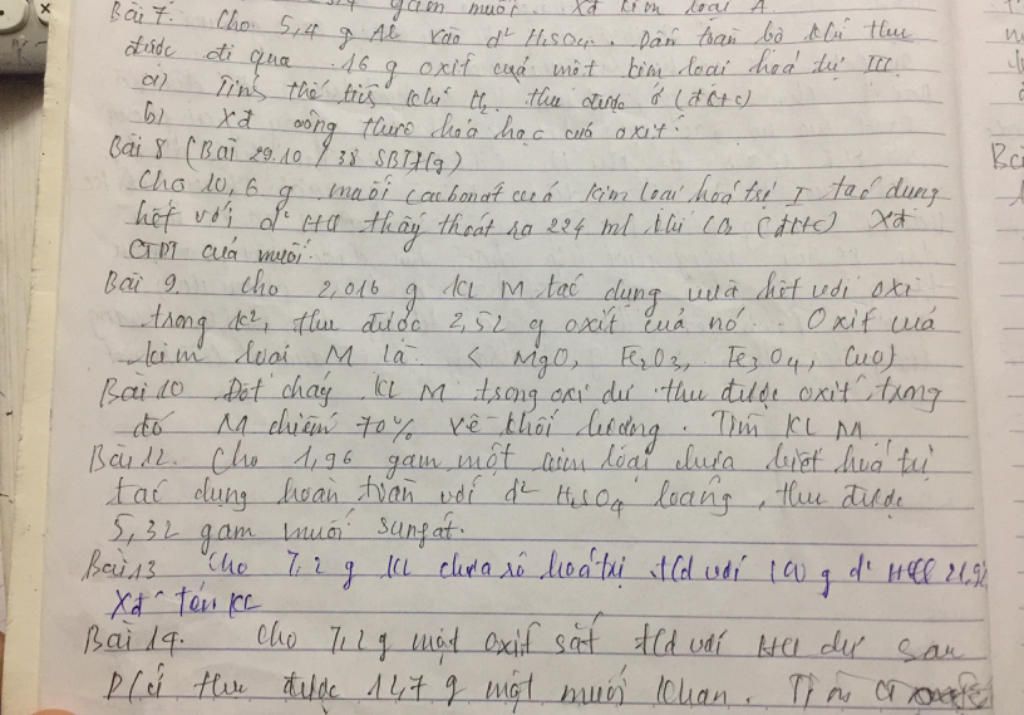 gam muối. Xđ kim loại A
Bài 7. Cho 5,4 g Al vào d² H₂SO₄. Dẫn toàn bộ khí thu
được đi qua 16 g oxit của một kim loại hoá trị III.
a) Tính thể tích khí H₂ thu được ở (đktc)
b) Xđ công thức hoá học của oxit.
Bài 8 (Bài 29.10 / 38 SBTHg)
Cho 10,6 g muối cacbonat của kim loại hoá trị I tác dụng
hết với d² HCl thấy thoát ra 224 ml khí (đktc) Xđ
CTPT của muối.
Bài 9. Cho 2,016 g KL M tác dụng vừa hết với oxi
trong k², thu được 2,52 g oxit của nó. Oxit của
kim loại M là < MgO, Fe₂O₃, Fe₃O₄, CuO)
Bài 10 Đốt cháy KL M trong oxi dư thu được oxit, trong
đó M chiếm 70% về khối lượng. Tìm KL M
Bài 12. Cho 1,96 gam một kim loại chưa biết hoá trị
tác dụng hoàn toàn với d² H₂SO₄ loãng, thu được
5,32 gam muối sunfat.
Bài 13 Cho 7,2 g KL chưa rõ hoá trị t/d với 100 g d² HCl 21,9%
Xđ tên KL
Bài 14. Cho 7,2 g một oxit sắt t/d với HCl dư sau
p/ứ thu được 12,7 g một muối khan. Tìm CT